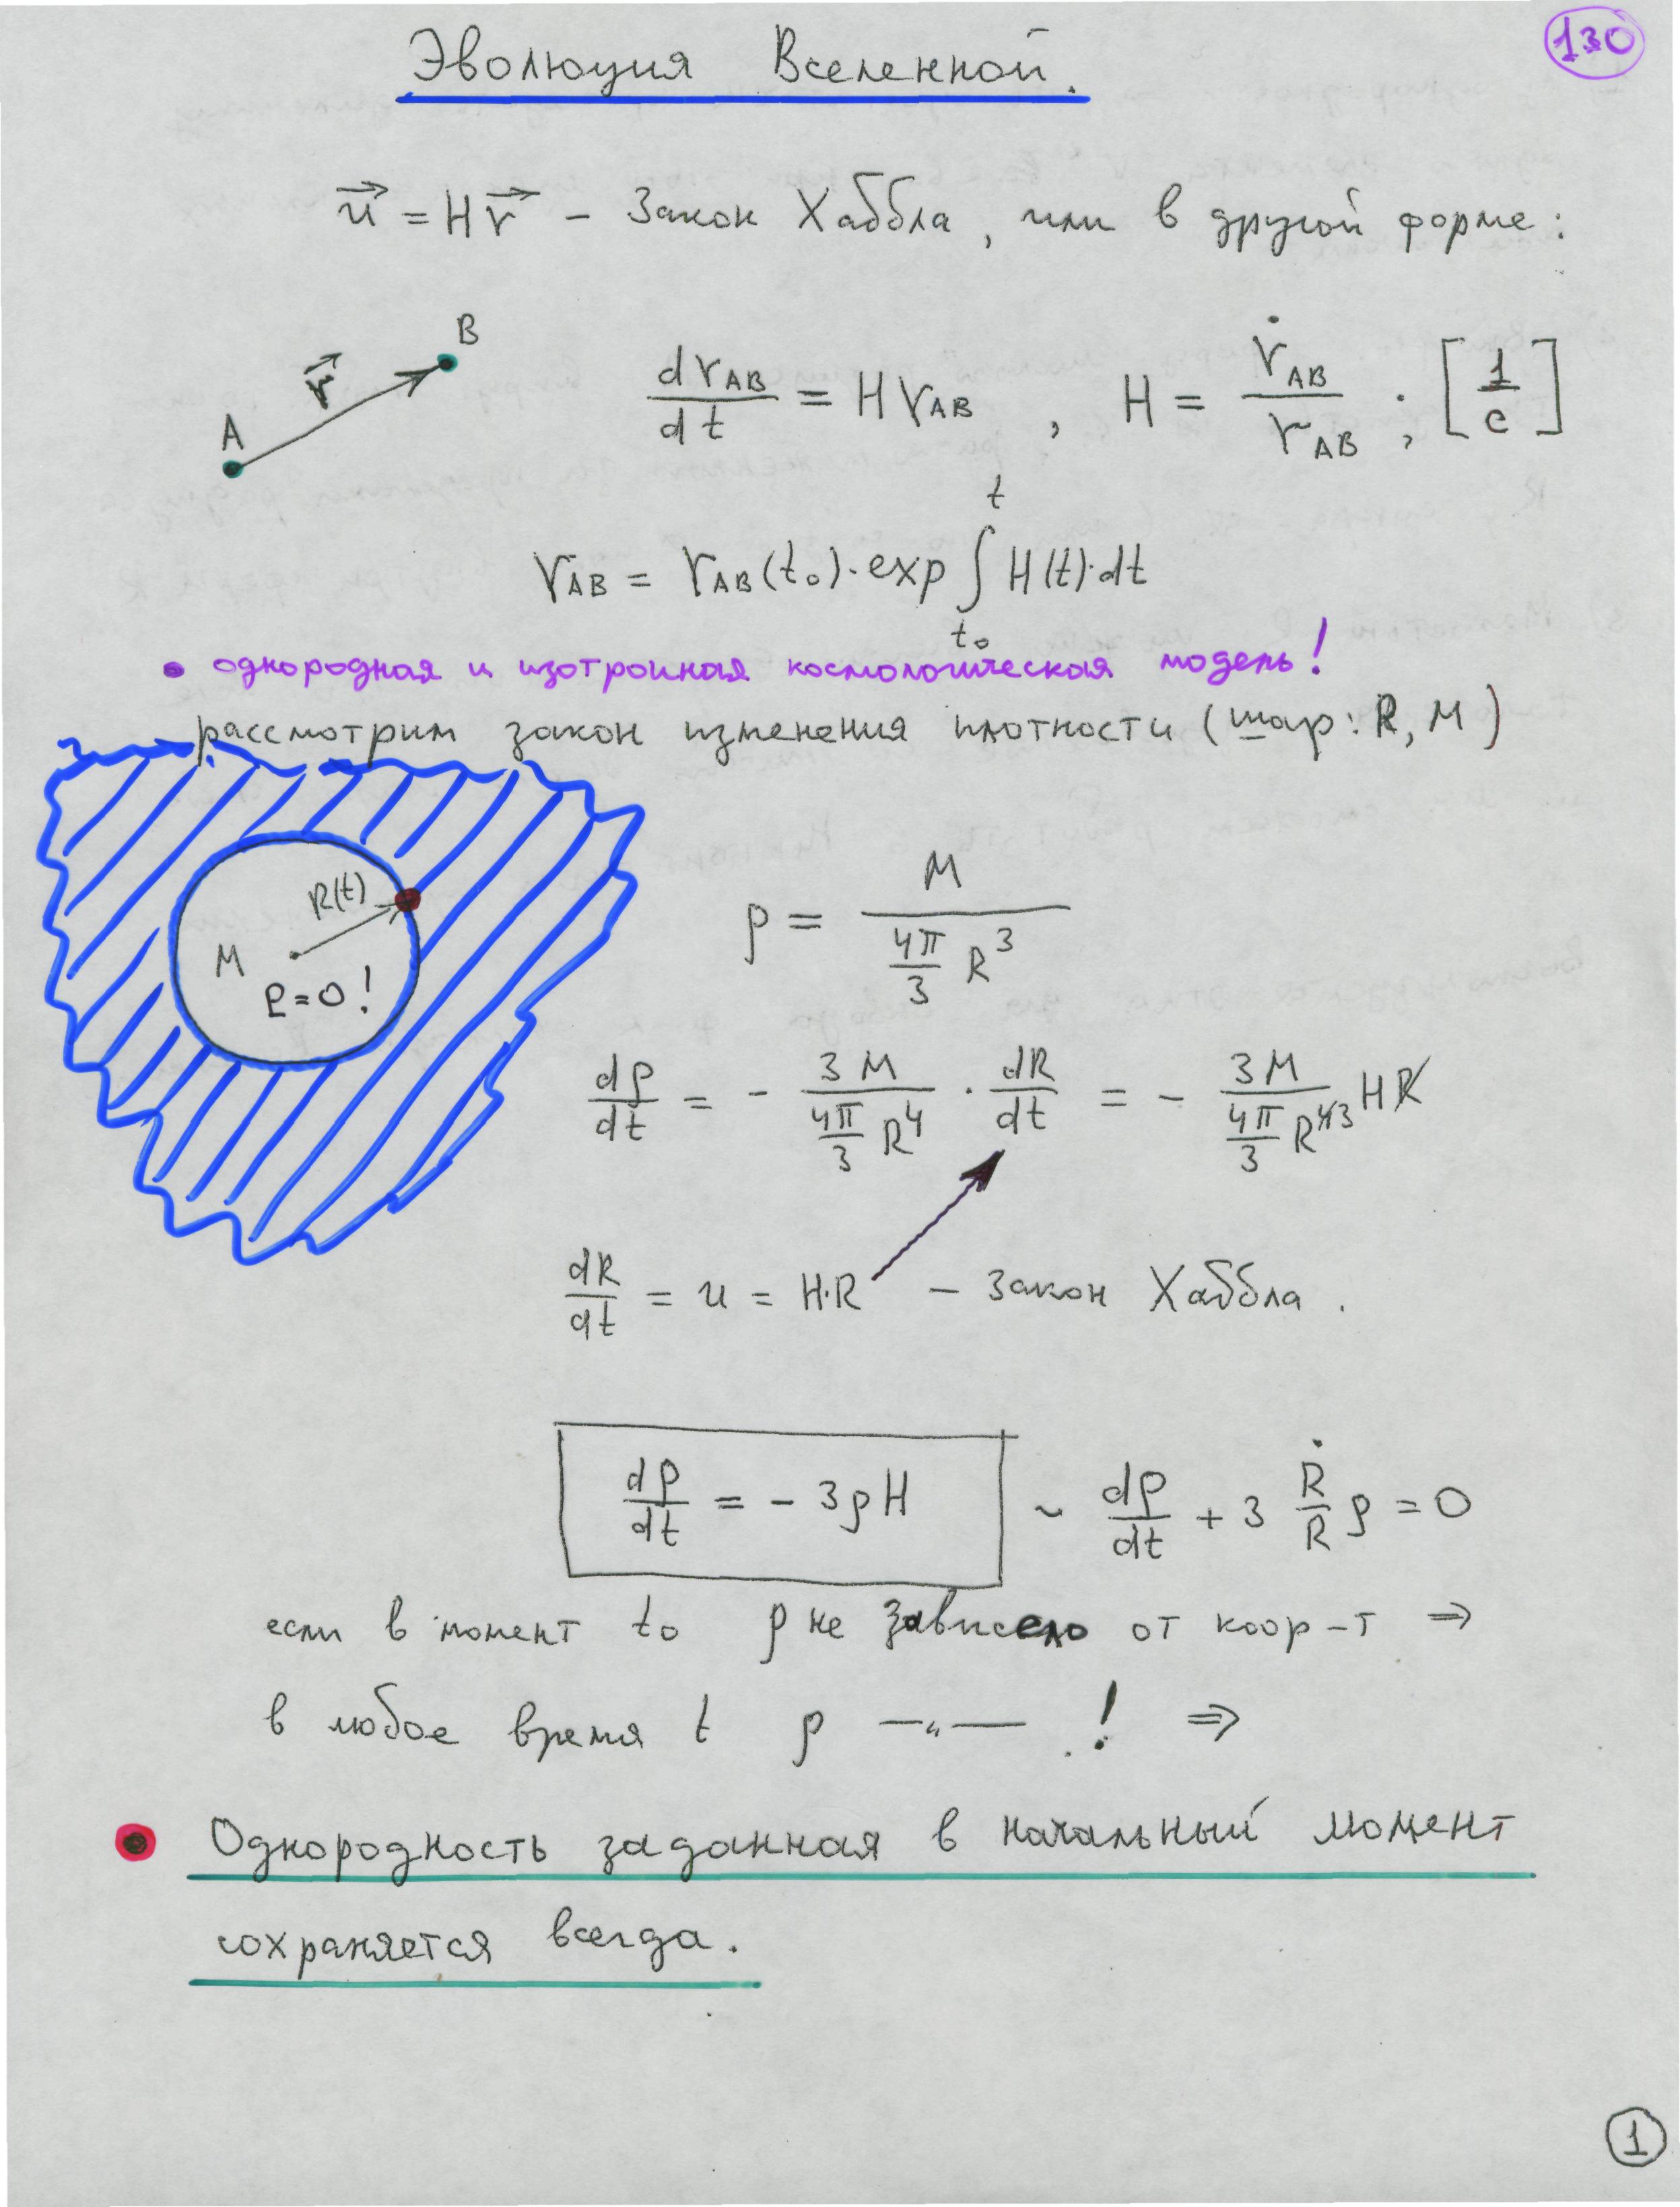 130
Эволюция Вселенной.
u⃗ = H r⃗ – Закон Хаббла, или в другой форме:
A r⃗ B
dr_AB/dt = H r_AB , H = ṙ_AB/r_AB ; [1/c]
r_AB = r_AB(t₀)·exp ∫_{t₀}^{t} H(t)·dt
• однородная и изотропная космологическая модель!
рассмотрим закон изменения плотности (шар: R, M)
R(t)
M
P=0!
ρ = M / (4π/3 R³)
dρ/dt = - 3M/(4π/3 R⁴) · dR/dt = - 3M/(4π/3 R^{4̸3}) H R̸
dR/dt = u = H·R – Закон Хаббла.
dρ/dt = - 3ρH ~ dρ/dt + 3 Ṙ/R ρ = 0
если в момент t₀ ρ не зависело от коор-т ⇒
в любое время t ρ —〃— ! ⇒
• Однородность заданная в начальный момент
сохраняется всегда.
1